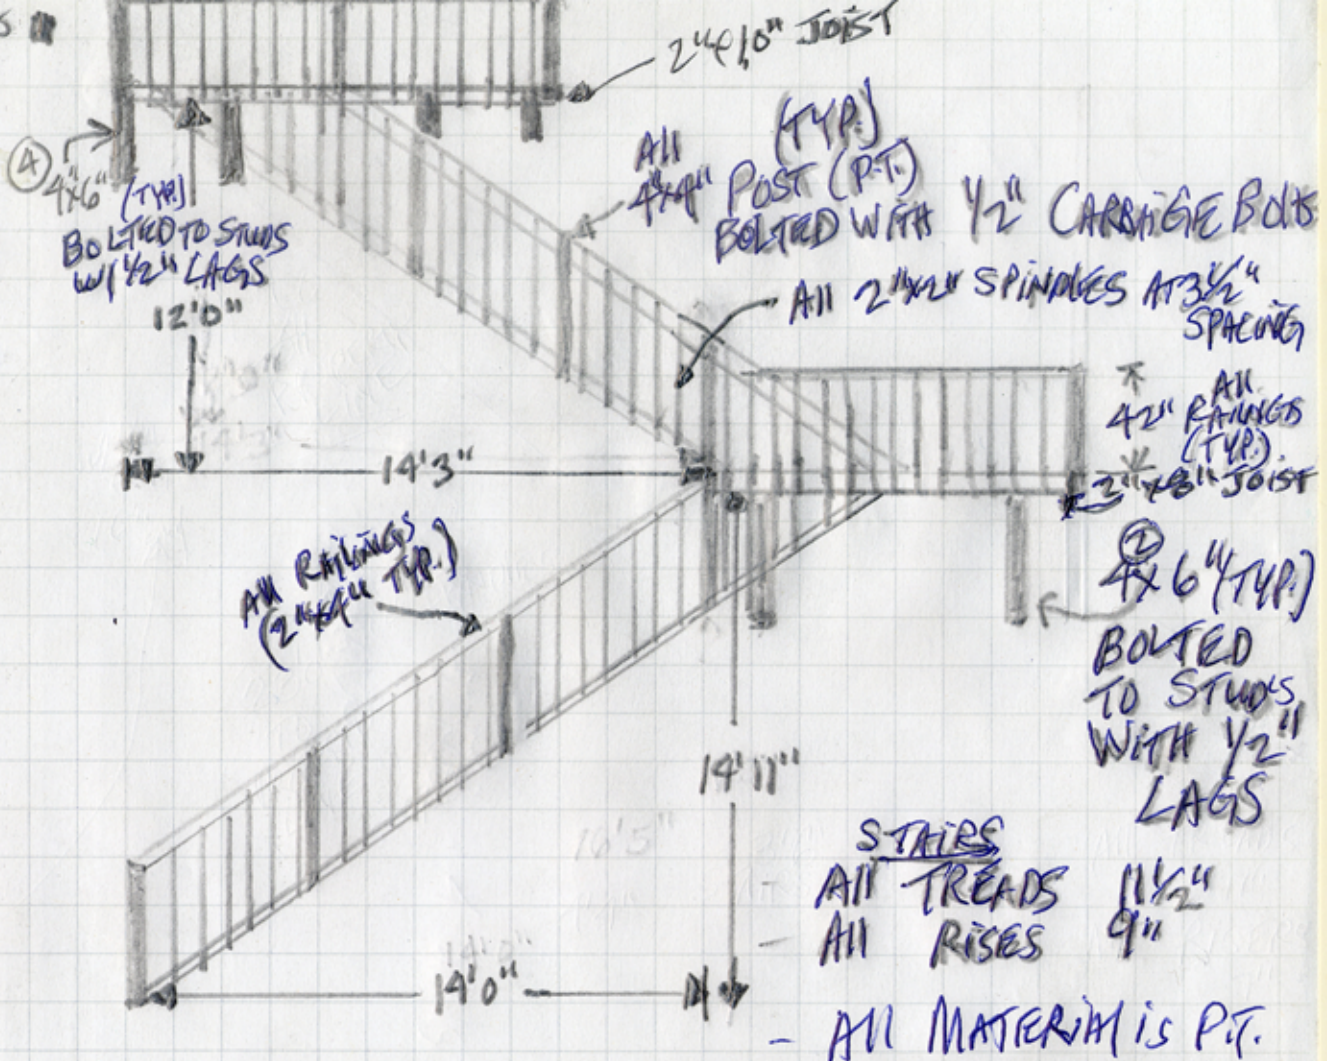 2"x10" JOIST
4
4x6" (TYP.)
BOLTED TO STUDS
W/ 1/2" LAGS
12'0"
All (TYP.)
4"x4" POST (P.T.)
BOLTED WITH 1/2" CARRAIGE BOltS
All 2"x2" SPINDLES AT 3 1/2"
SPACING
All
42" RAILINGS
(TYP.)
2"x8" JOIST
14'3"
All RAILINGS
(2"x4" TYP.)
2
4x6" (TYP.)
BOLTED
TO STUDS
WITH 1/2"
LAGS
14'11"
16'5"
STAIRS
All TREADS 11 1/2"
All RISES 9"
14'0"
- All MATERIAl is P.T.